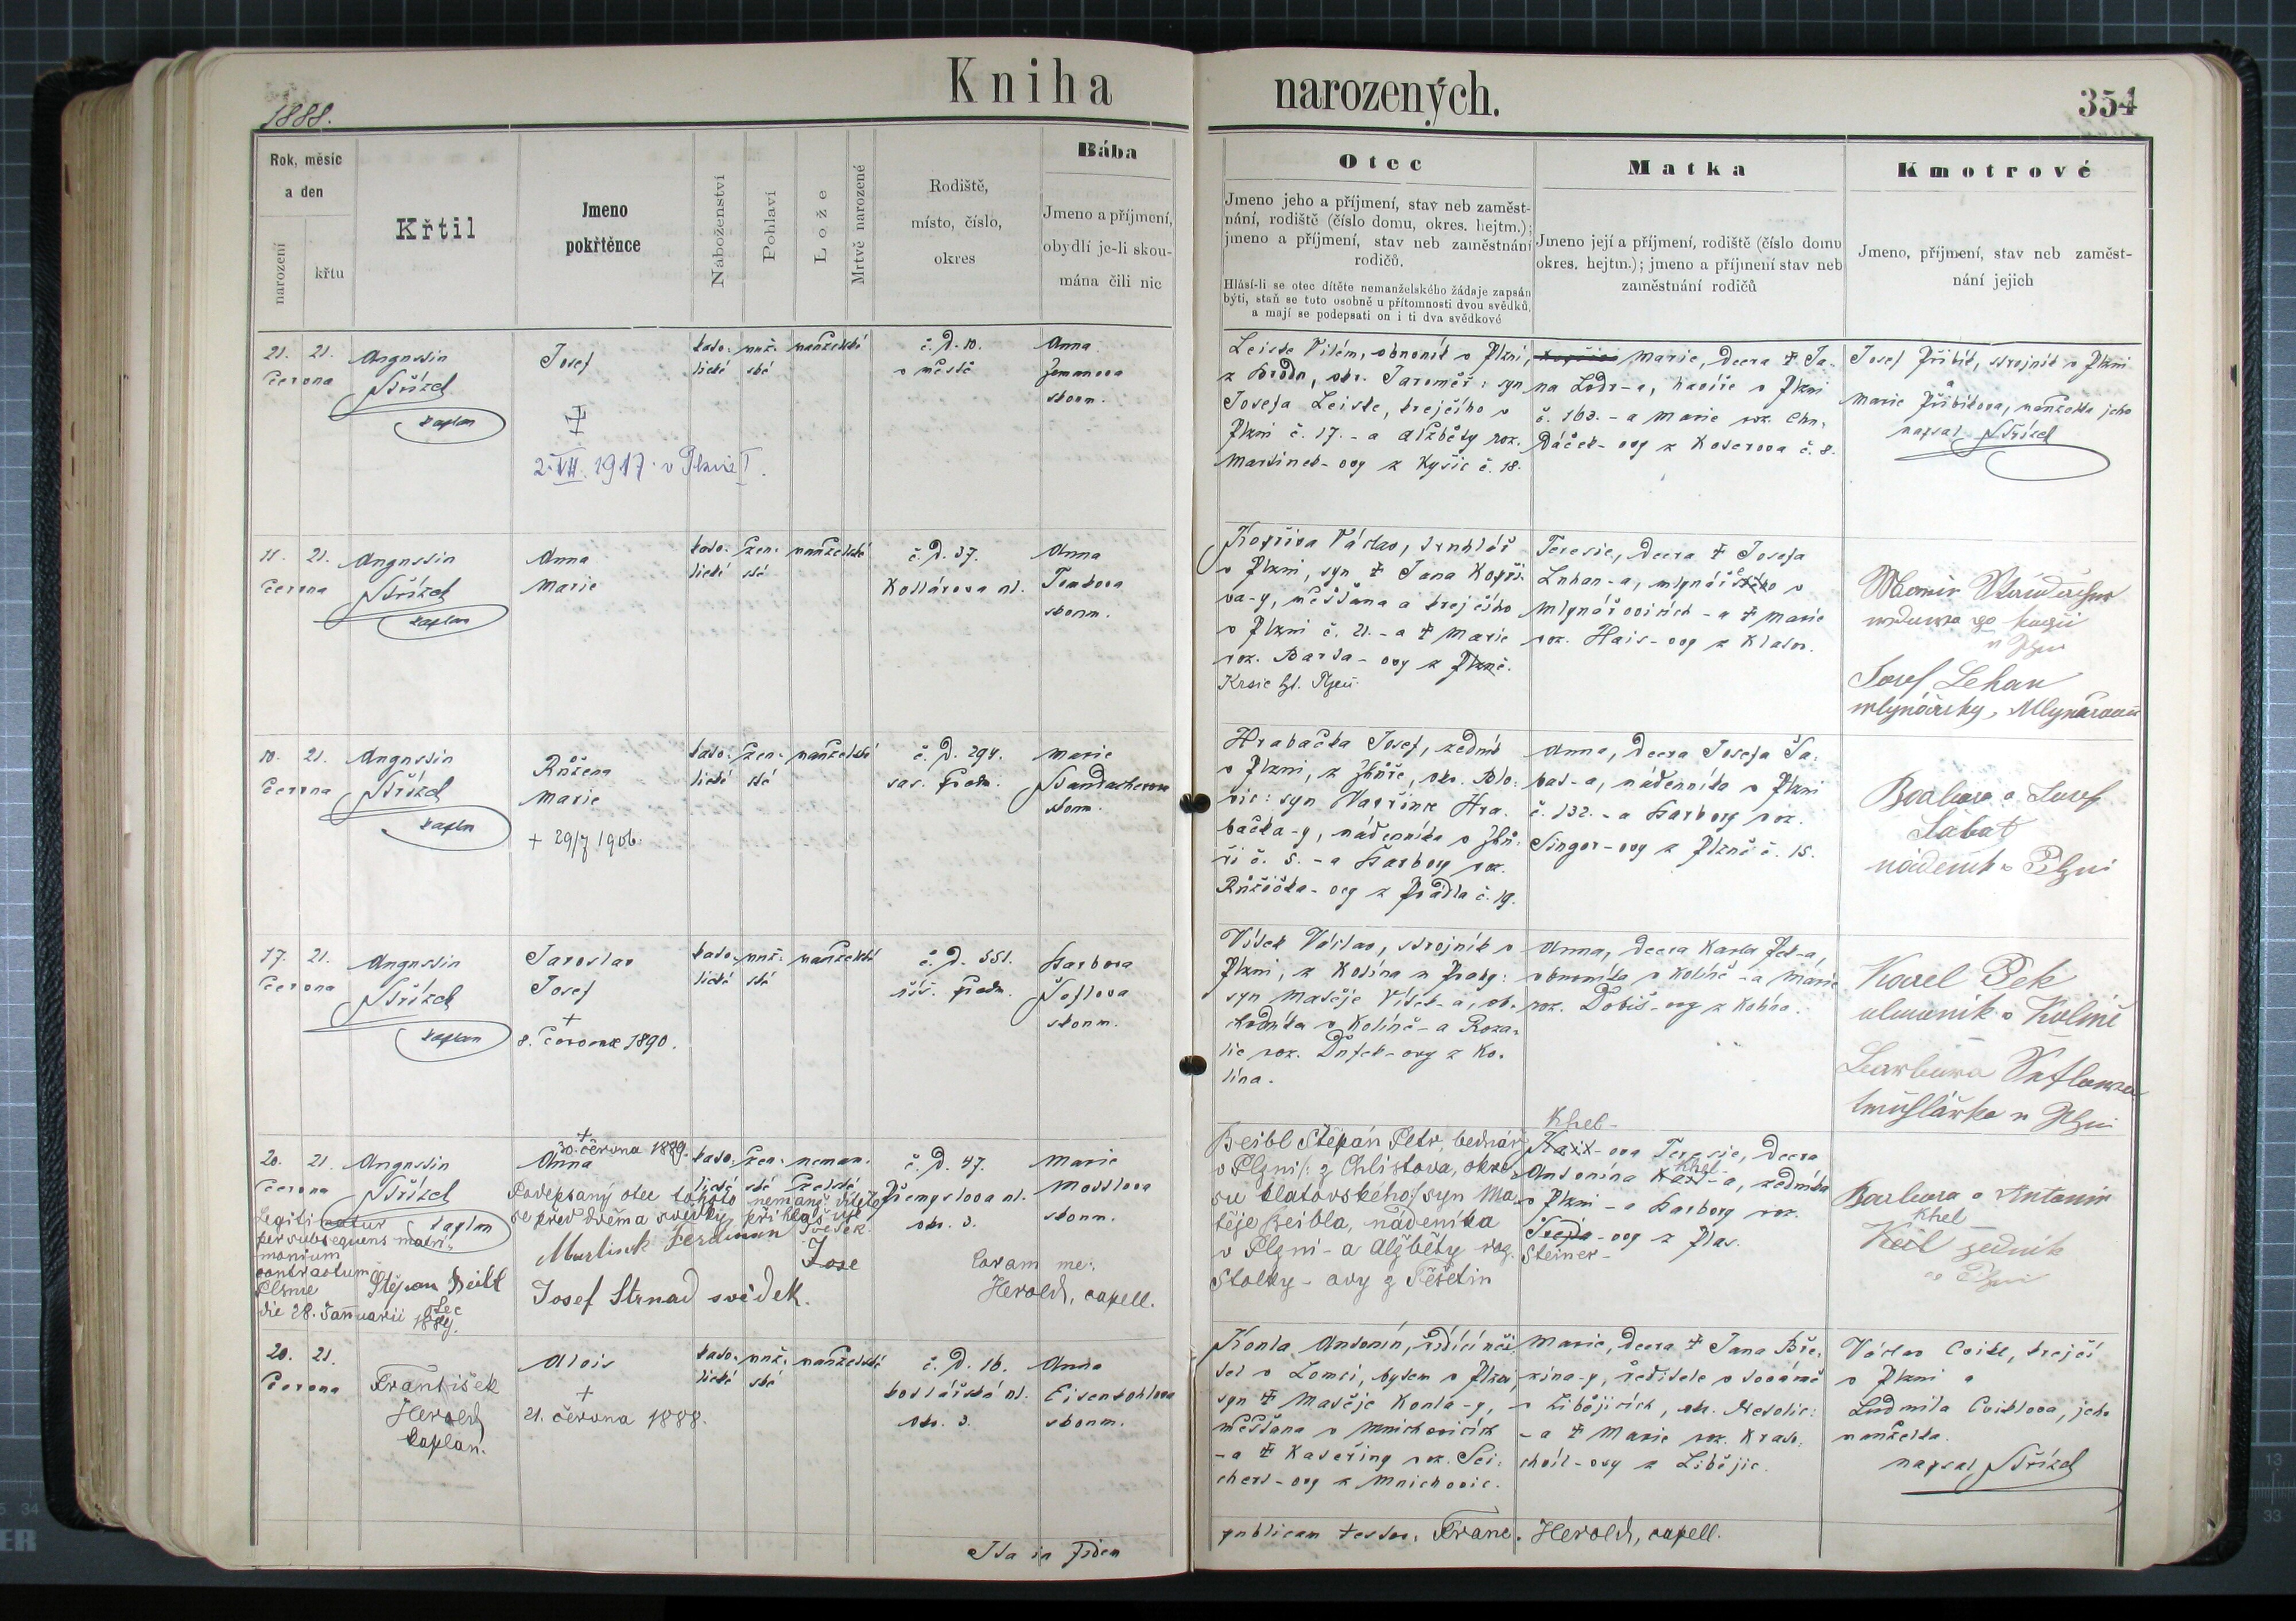 Kniha narozených.
1888.
354
Rok, měsíc
a den
narození
křtu
Křtil
Jmeno
pokřtěnce
Náboženství
Pohlaví
Lože
Mrtvě narozené
Rodiště,
místo, číslo,
okres
Bába
Jmeno a příjmení,
obydlí je-li skou-
mána čili nic
Otec
Jmeno jeho a příjmení, stav neb zaměst-
nání, rodiště (číslo domu, okres. hejtm.);
jmeno a příjmení, stav neb zaměstnání
rodičů.
Hlásí-li se otec dítěte nemanželského žádaje zapsán
býti, staň se toto osobně u přítomnosti dvou svědků,
a mají se podepsati on i ti dva svědkové
Matka
Jmeno její a příjmení, rodiště (číslo domu
okres. hejtm.); jmeno a příjmení stav neb
zaměstnání rodičů
Kmotrové
Jmeno, příjmení, stav neb zaměst-
nání jejich
21. 21.
června
Augustin
Střízek
kaplan
Josef
2. VII. 1917 v Plzni I.
kato-
lické
muž-
ské
manželské
č. d. 10.
v městě
Anna
Zemanova
skoum.
v Plzni,
z Brodu, okr. Jaroměř: syn
Josefa Leiste, krejčího v
Plzni č. 17. - a Alžběty roz.
Martinek-ovy z Kyšic č. 18.
Marie, dcera † Ja-
na Lodr-a, havíře v Plzni
č. 163. - a Marie roz. Chu-
dáček-ovy z Koterova č. 8.
Josef Přibík, strojník v Plzni
a
Marie Přibíkova, manželka jeho
napsal Střízek
11. 21.
června
Augustin
Střízek
kaplan
Anna
Marie
kato-
lické
žen-
ské
manželské
č. d. 37.
Kollárova ul.
Anna
Tomkova
skoum.
Kopřiva Václav, truhlář
v Plzni, syn † Jana Kopři-
va-y, měšťana a krejčího
v Plzni č. 21. - a † Marie
roz. Barta-ovy z Plzně.
Terezie, dcera † Josefa
v
- a † Marie
roz. Hais-ovy z Klatov.
Josef Lehan
mlynářský,
10. 21.
června
Augustin
Střízek
kaplan
Růžena
Marie
+ 29/7 1906.
kato-
lické
žen-
ské
manželské
č. d. 294.
sas. předm.
Marie
Standacherova
skoum.
Hrabačka Josef, zedník
v Plzni, z Zbůře, okr. Blo-
vic: syn Vavřince Hra-
bačka-y, nádenníka v Zbů-
ři č. 5. - a Barbory roz.
Růžička-ovy z Prádla č. 19.
Anna, dcera Josefa Ša-
bat-a, nádenníka v Plzni
č. 132. - a Barbory roz.
Singer-ovy z Plzně č. 15.
Barbora a Josef
Šabat
nádeník v Plzni
17. 21.
června
Augustin
Střízek
kaplan
Jaroslav
Josef
+
8. července 1890.
kato-
lické
muž-
ské
manželské
č. d. 551.
říš. předm.
Barbora
Šoflova
skoum.
Vítek Václav, strojník v
Plzni, z Kolína u Prahy:
syn Matěje Vítek-a, ob-
chodníka v Kolíně - a Roza-
lie roz. Dufek-ovy z Ko-
lína.
Anna, dcera Karla Pek-a,
v Kolíně - a Marie
roz. Dobiš-ovy z
Karel Pek
v Kolíně
Barbora
truhlářka v Plzni
20. 21.
června
Augustin
Střízek
kaplan
Legitimatur
per subsequens matri-
monium
contractum
Plsnae
die 28. Januarii 1889.
+
30. června 1889.
Anna
Podepsaný otec tohoto nemanž. dítěte
se před dvěma svědky přihlašuje
Martinek Ferdinan svědek
Štěpan Beibl
otec
Josef Strnad svědek.
kato-
lické
žen-
ské
neman-
želské
č. d. 47.
Přemyslova ul.
okr. 3.
Coram me:
Herold, capell.
Marie
Mottlova
skoum.
Beibl Štěpán Petr, bednář
v Plzni: z Chlistova, okre-
su klatovského, syn Ma-
těje Beibla, nádeníka
v Plzni - a Alžběty roz.
Stolky-ovy z Těšetin
Khel-
ova Terezie, dcera
Antonína Khel-a, zedníka
v Plzni - a Barbory roz.
Steiner-
ovy z Plas.
Barbora a Antonín
Khel
Keil zedník
v Plzni
20. 21.
června
František
Herold
kaplan.
Alois
+
21. června 1888.
kato-
lické
muž-
ské
manželské
č. d. 16.
kotlářská ul.
okr. 3.
Anna
Eisenkohlova
skoum.
Konta Antonín, řídící uči-
tel v Lomci, bytem v Plzni,
syn † Matěje Konta-y,
měšťana v Mnichovicích
- a † Kateřiny roz. Sei-
chert-ovy z Mnichovic.
Marie, dcera † Jana Bře-
zina-y, ředitele v továrně
v Libějicích, okr. Netolic:
- a † Marie roz. Krato-
chvíl-ovy z Libějic.
Václav Cvikl, krejčí
v Plzni a
Ludmila Cviklova, jeho
manželka.
napsal Střízek
Ita in fidem publicam testor. Franc. Herold, capell.